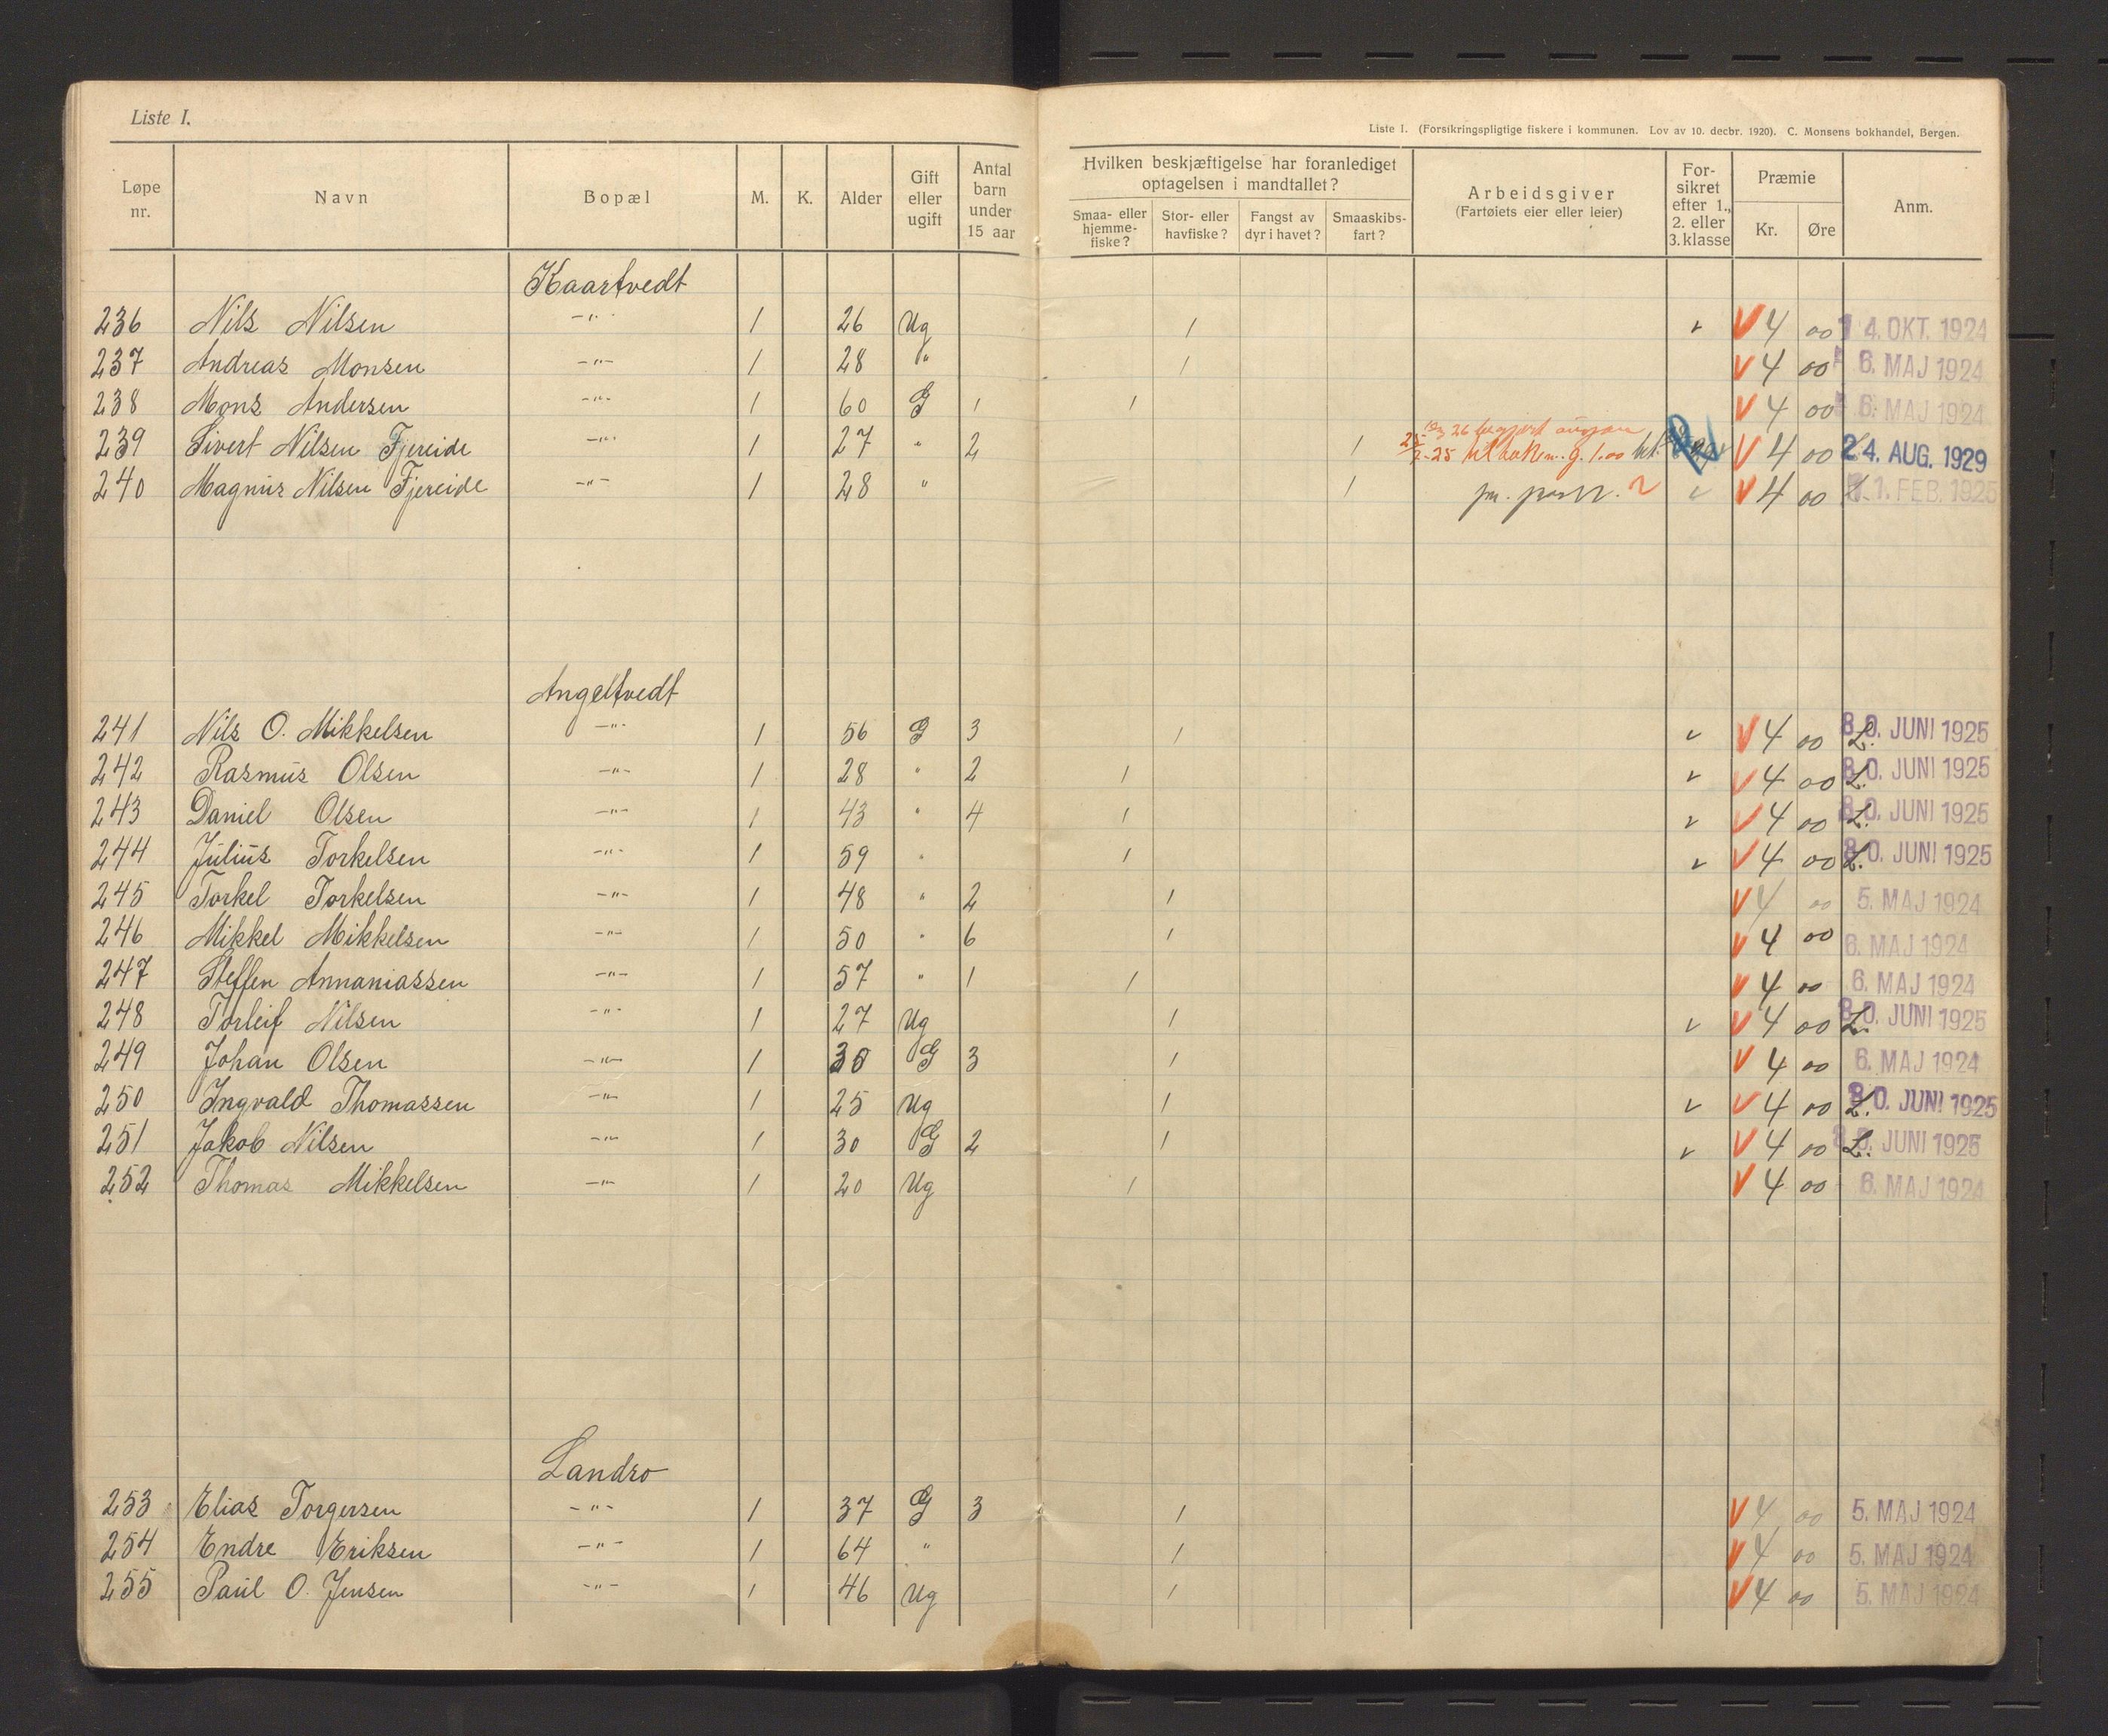 Liste I.
Liste I. (Forsikringspligtige fiskere i kommunen. Lov av 10. decbr. 1920). C. Monsens bokhandel, Bergen.
Løpe nr. Navn Bopæl M. K. Alder Gift eller ugift Antal barn under 15 aar Hvilken beskjæftigelse har foranlediget optagelsen i mandtallet? Smaa- eller hjemme-fiske? Stor- eller havfiske? Fangst av dyr i havet? Smaaskibs-fart? Arbeidsgiver (Fartøiets eier eller leier) For-sikret efter 1., 2. eller 3. klasse Præmie Kr. Øre Anm.
Kaartvedt
236 Nils Nilsen -"- 1 26 Ug 1 v V 4 00 14. OKT. 1924
237 Andreas Monsen -"- 1 28 " 1 V 4 00 6. MAJ 1924
238 Mons Andersen -"- 1 60 G 1 1 V 4 00 6. MAJ 1924
239 Sivert Nilsen Fjereide -"- 1 27 " 2 1 V 4 00 24. AUG. 1929
240 Magnus Nilsen Fjereide -"- 1 28 " 1 v V 4 00 1. FEB. 1925
Angeltvedt
241 Nils O. Mikkelsen -"- 1 56 G 3 1 v V 4 00 L. 30. JUNI 1925
242 Rasmus Olsen -"- 1 28 " 2 1 v V 4 00 L. 30. JUNI 1925
243 Daniel Olsen -"- 1 43 " 4 1 v V 4 00 L. 30. JUNI 1925
244 Julius Torkelsen -"- 1 59 " 1 v V 4 00 L. 30. JUNI 1925
245 Torkel Torkelsen -"- 1 48 " 2 1 V 4 00 5. MAJ 1924
246 Mikkel Mikkelsen -"- 1 50 " 6 1 V 4 00 6. MAJ 1924
247 Steffen Annaniassen -"- 1 57 " 1 1 V 4 00 6. MAJ 1924
248 Torleif Nilsen -"- 1 27 Ug 1 v V 4 00 L. 30. JUNI 1925
249 Johan Olsen -"- 1 G 3 1 V 4 00 6. MAJ 1924
250 Ingvald Thomassen -"- 1 25 Ug 1 v V 4 00 L. 30. JUNI 1925
251 Jakob Nilsen -"- 1 30 G 2 1 v V 4 00 L. 30. JUNI 1925
252 Thomas Mikkelsen -"- 1 20 Ug 1 V 4 00 6. MAJ 1924
Landro
253 Elias Torgersen -"- 1 37 G 3 1 V 4 00 5. MAJ 1924
254 Endre Eriksen -"- 1 64 " 1 V 4 00 5. MAJ 1924
255 Paul O. Jensen -"- 1 46 Ug 1 V 4 00 5. MAJ 1924